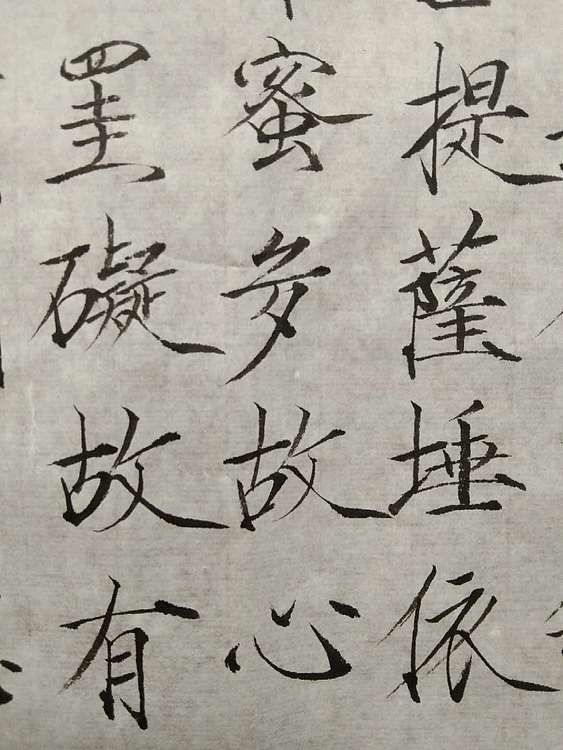 提薩埵依
蜜多故心
罣礙故有